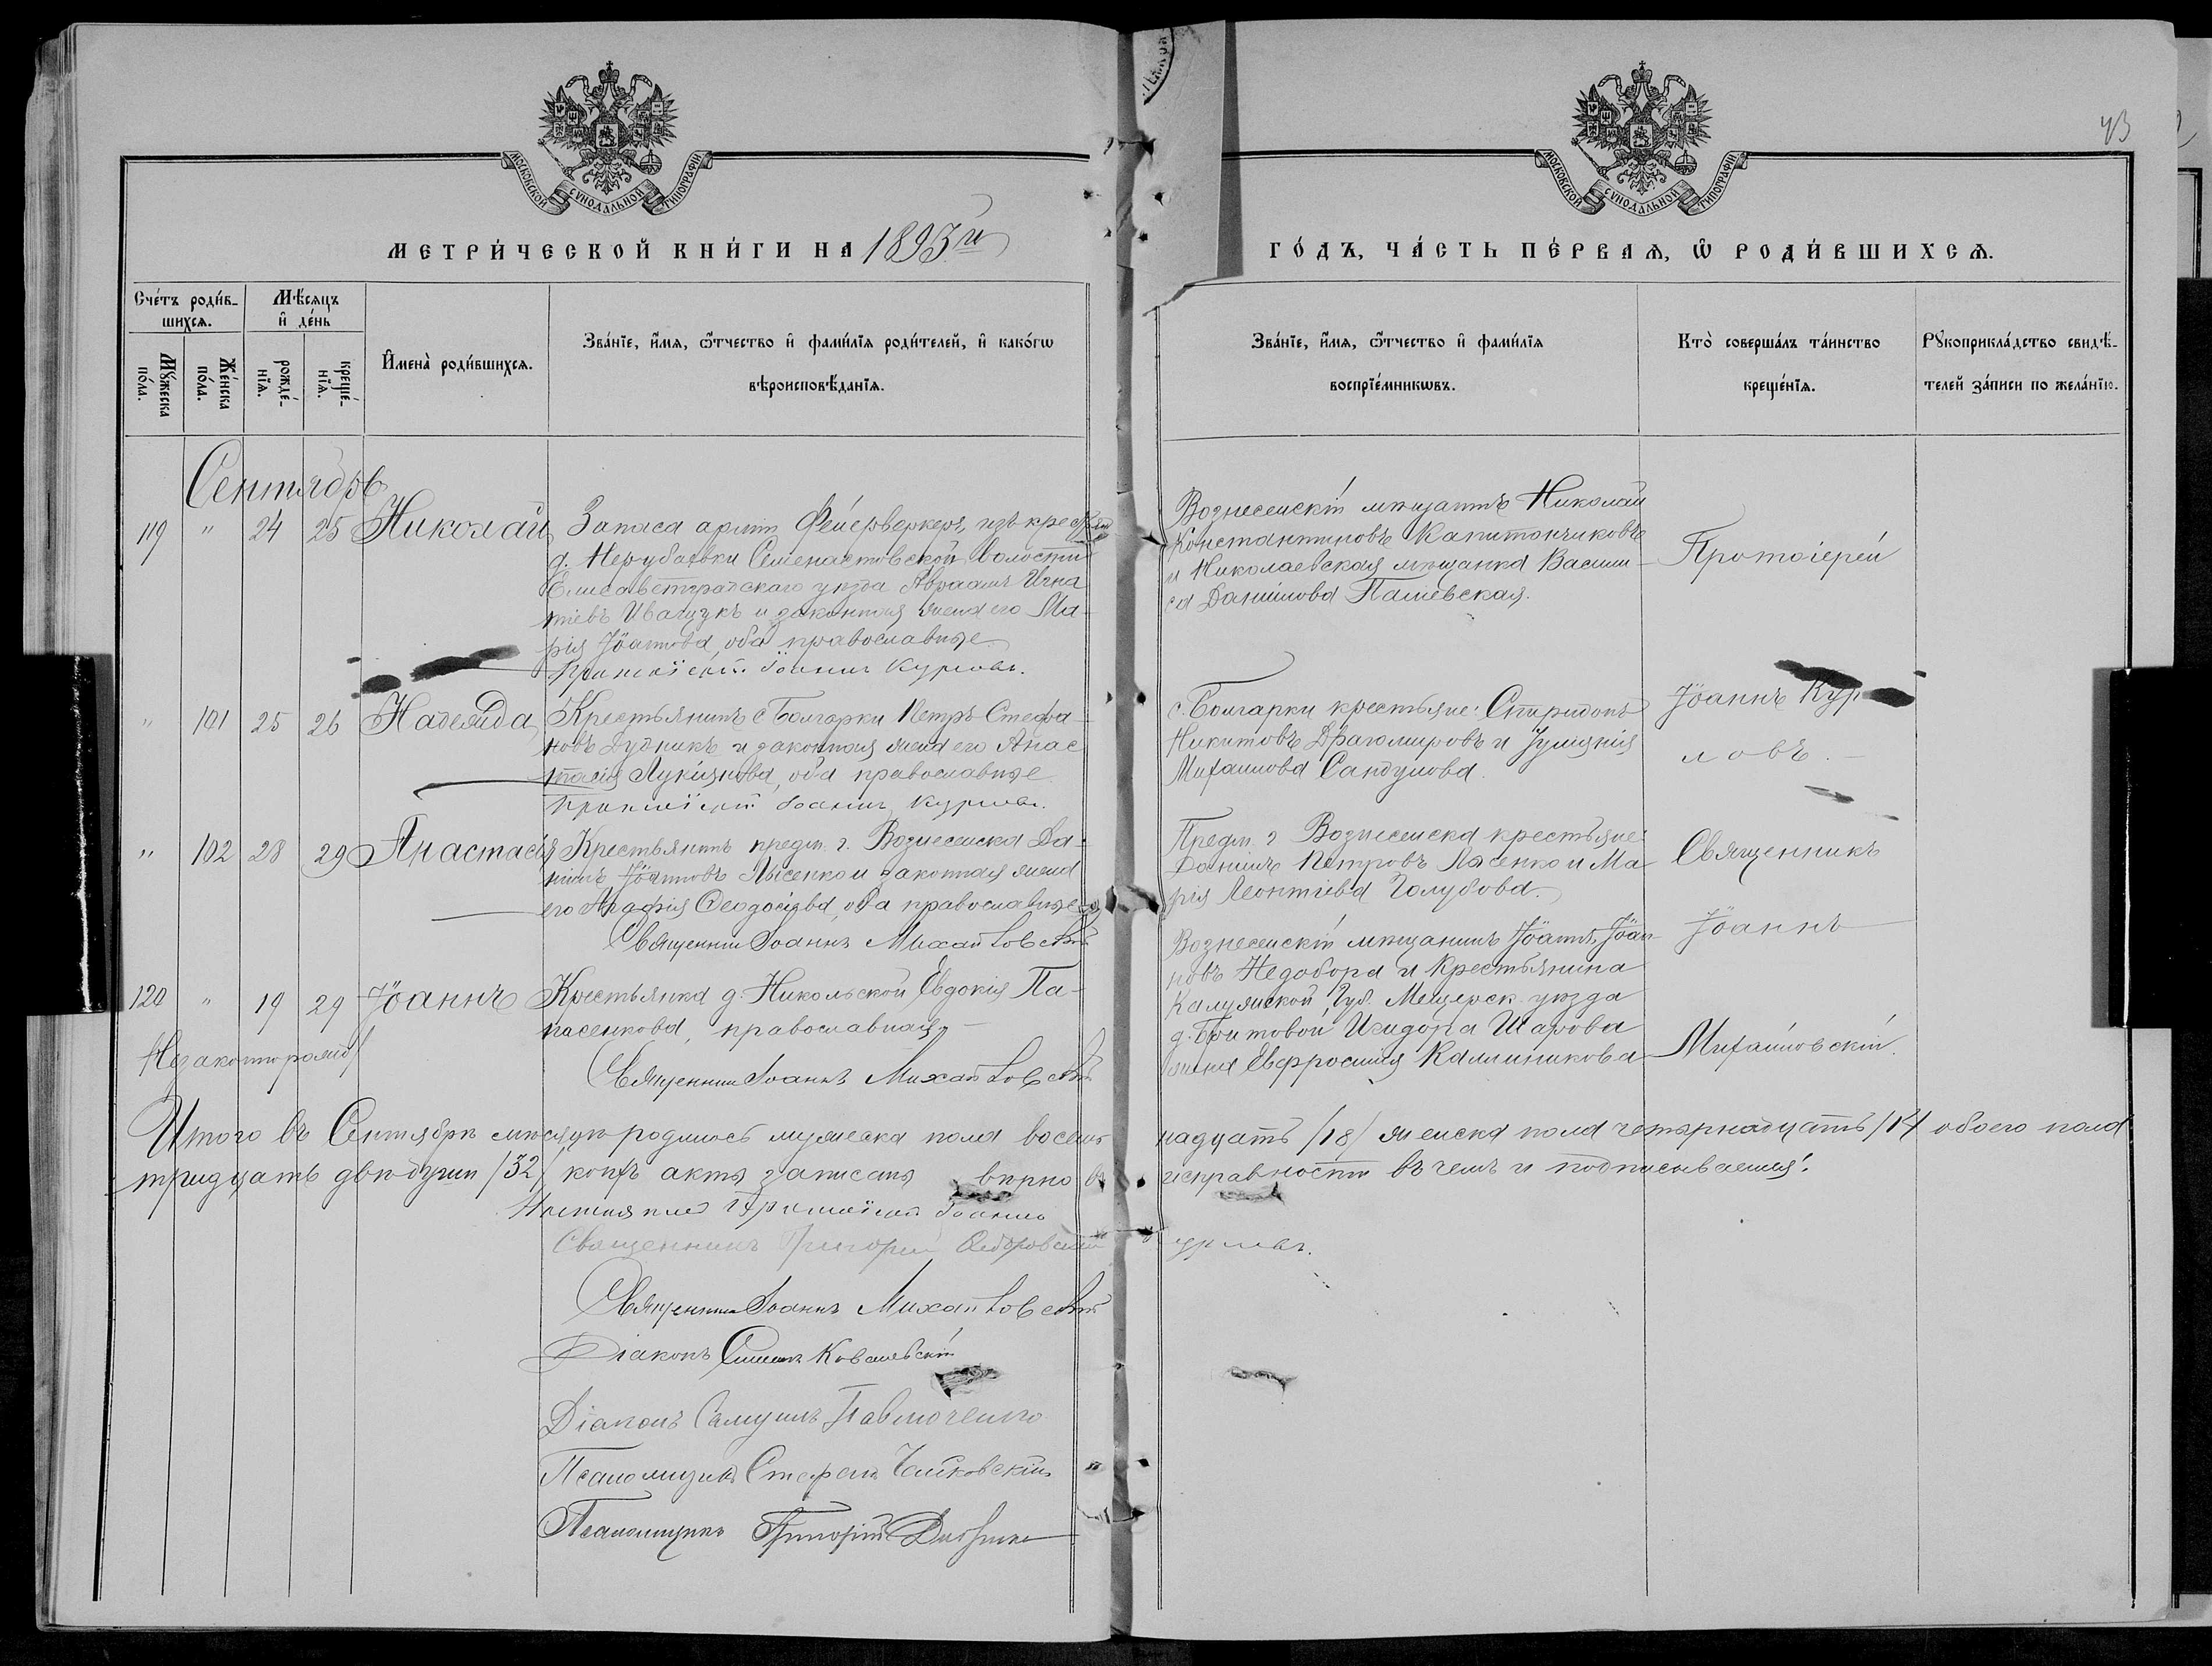 43
МОСКОВСКОЙ СѴНОДАЛЬНОЙ ТИПОГРАФІИ
МОСКОВСКОЙ СѴНОДАЛЬНОЙ ТИПОГРАФІИ
МЕТРИ́ЧЕСКОЙ КНИ́ГИ НА 1893й
ГО́ДЪ, ЧА́СТЬ ПЕ́РВАѦ, Ѽ РОДИ́ВШИХСѦ.
Сче́тъ роди́в-
шихсѧ.
Мꙋ́жеска по́ла.
Же́нска по́ла.
Мѣ́сѧцъ и҆ де́нь
рожде́-
нїѧ.
креще́-
нїѧ.
И҆мена̀ роди́вшихсѧ.
Зва́нїе, и҆́мѧ, ѻ҆́тчество и҆ фами́лїѧ роди́телей, и҆ како́гѡ
вѣроисповѣ́данїѧ.
Зва́нїе, и҆́мѧ, ѻ҆́тчество и҆ фами́лїѧ
воспрїе́мникѡвъ.
Кто̀ соверша́лъ та́инство
креще́нїѧ.
Рꙋкоприкла́дство свидѣ́-
телей за́писи по жела́нїю.
Сентябрь
119 " 24 25 Николай
Запаса армт. Фейерверкеръ, изъ крест.
д. Нерубаевки Семенастовской волости
Елисаветградскаго уѣзда Авраамъ Игна
тіевъ Иващукъ и законная жена его Ма-
рія Іоаннова, оба православные
Протоіерей Іоаннъ Курловъ.
Вознесенскій мѣщанинъ Николай
Константиновъ Капитончиковъ
и Николаевская мѣщанка Васили-
са Даниилова Пашевская.
Протоіерей
" 101 25 26 Надежда
Крестьянинъ с. Болгарки Петръ Стефа-
новъ Дудникъ и законная жена его Анас
тасія Лукіянова, оба православные
Протоіерей Іоаннъ Курловъ.
с. Болгарки крестьяне: Спиридонъ
Никитовъ Драгомировъ и Іуліянія
Михаилова Сандулова.
Іоаннъ Кур
ловъ.
" 102 28 29 Анастасія
Крестьянинъ предм. г. Вознесенска Да-
ніилъ Іоанновъ Лысенко и законная жена
его Агафія Ѳеодосіева, оба православные
Священникъ Іоаннъ Михайловскій
Предм. г. Вознесенска крестьяне:
Даніилъ Петровъ Лясенко и Ма
рія Леонтіева Голубова.
Священникъ
120 " 19 29 Іоаннъ
Незаконнорожд.
Крестьянка д. Никольской Евдокія Па-
пасенкова, православная
Священникъ Іоаннъ Михайловскій
Вознесенскій мѣщанинъ Іоаннъ Іоан-
новъ Недобора и крестьянина
Калужской Губ. Мещерск. уѣзда
д. Бритовой Исидора Шарова
жена Евфросинія Калинникова
Іоаннъ
Михайловскій.
Итого въ Сентябрѣ мѣсяцѣ родилось мужеска пола восемь надцать /18/ женска пола четырнадцать /14/ обоего пола
тридцать двѣ души /32/ коихъ акты записаны вѣрно въ исправности въ чемъ и подписываемся:
Настоятель Протоіерей Іоаннъ Курловъ.
Священникъ Григорій
Священникъ Іоаннъ Михайловскій
Діаконъ Симеонъ Ковалевскій
Діаконъ Самуилъ Павлюченко
Псаломщикъ Стефанъ Чайковскій
Псаломщикъ Григорій